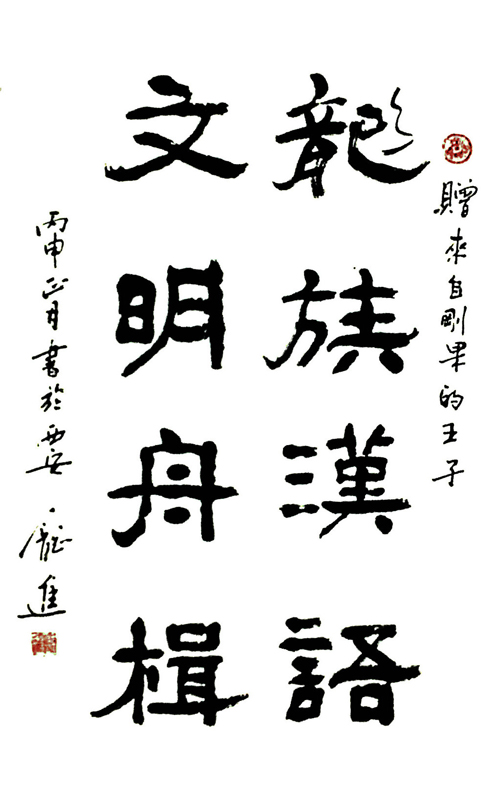 贈來自剛果的王子
龍族漢語
文明舟楫
丙申正月書於西安
龐進